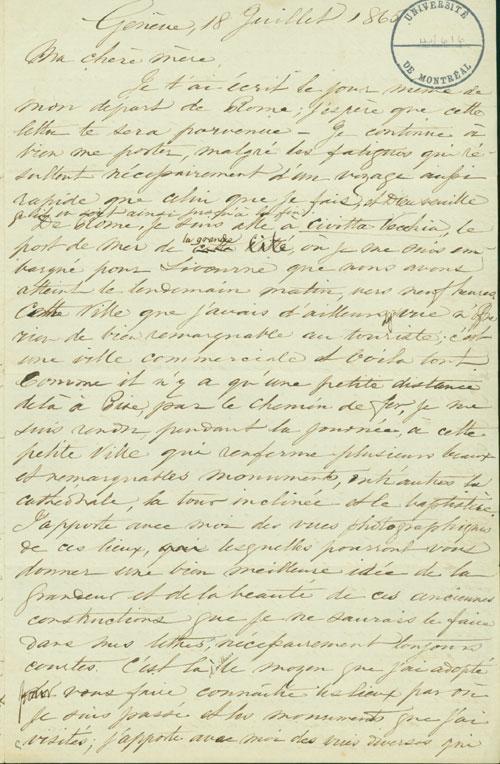 Genève, 18 Juillet, 186
UNIVERSITÉ
DE MONTRÉAL
Ma chère mère,
Je t'ai écrit le jour même de
mon départ de Rome; j'espère que cette
lettre te sera parvenue – Je continue à
bien me porter, malgré les fatigues qui ré-
sultent nécessairement d'un voyage aussi
rapide que celui que je fais, et Dieu veuille
qu'il en soit ainsi jusqu'à la fin!
De Rome, je suis allé à Civitta Vecchia, le
port de mer de la grande cité où je me suis em
barqué pour Livourne que nous avons
atteint le lendemain matin, vers neuf heures.
Cette Ville que j'avais d'ailleurs vue a
rien de bien remarquable au touriste; c'est
une ville commerciale et voilà tout.
Comme il n'y a qu'une petite distance
de là à Pise, par le chemin de fer, je me
suis rendu, pendant la journée, à cette
petite Ville que renferme plusieurs beaux
et remarquables monuments, entr'autres la
cathédrale, la tour inclinée et le baptistère.
J'apporte avec moi des vues photographiques
de ces lieux, lesquelles pourront vous
donner une bien meilleure idée de la
grandeur et de la beauté de ces anciennes
constructions que je ne saurais le faire
dans mes lettres, nécessairement toujours
courtes. C'est là le moyen que j'ai adopté
pour vous faire connaître les lieux par où
je suis passé et les monuments que j'ai
visités; j'apporte avec moi des vues diverses qui